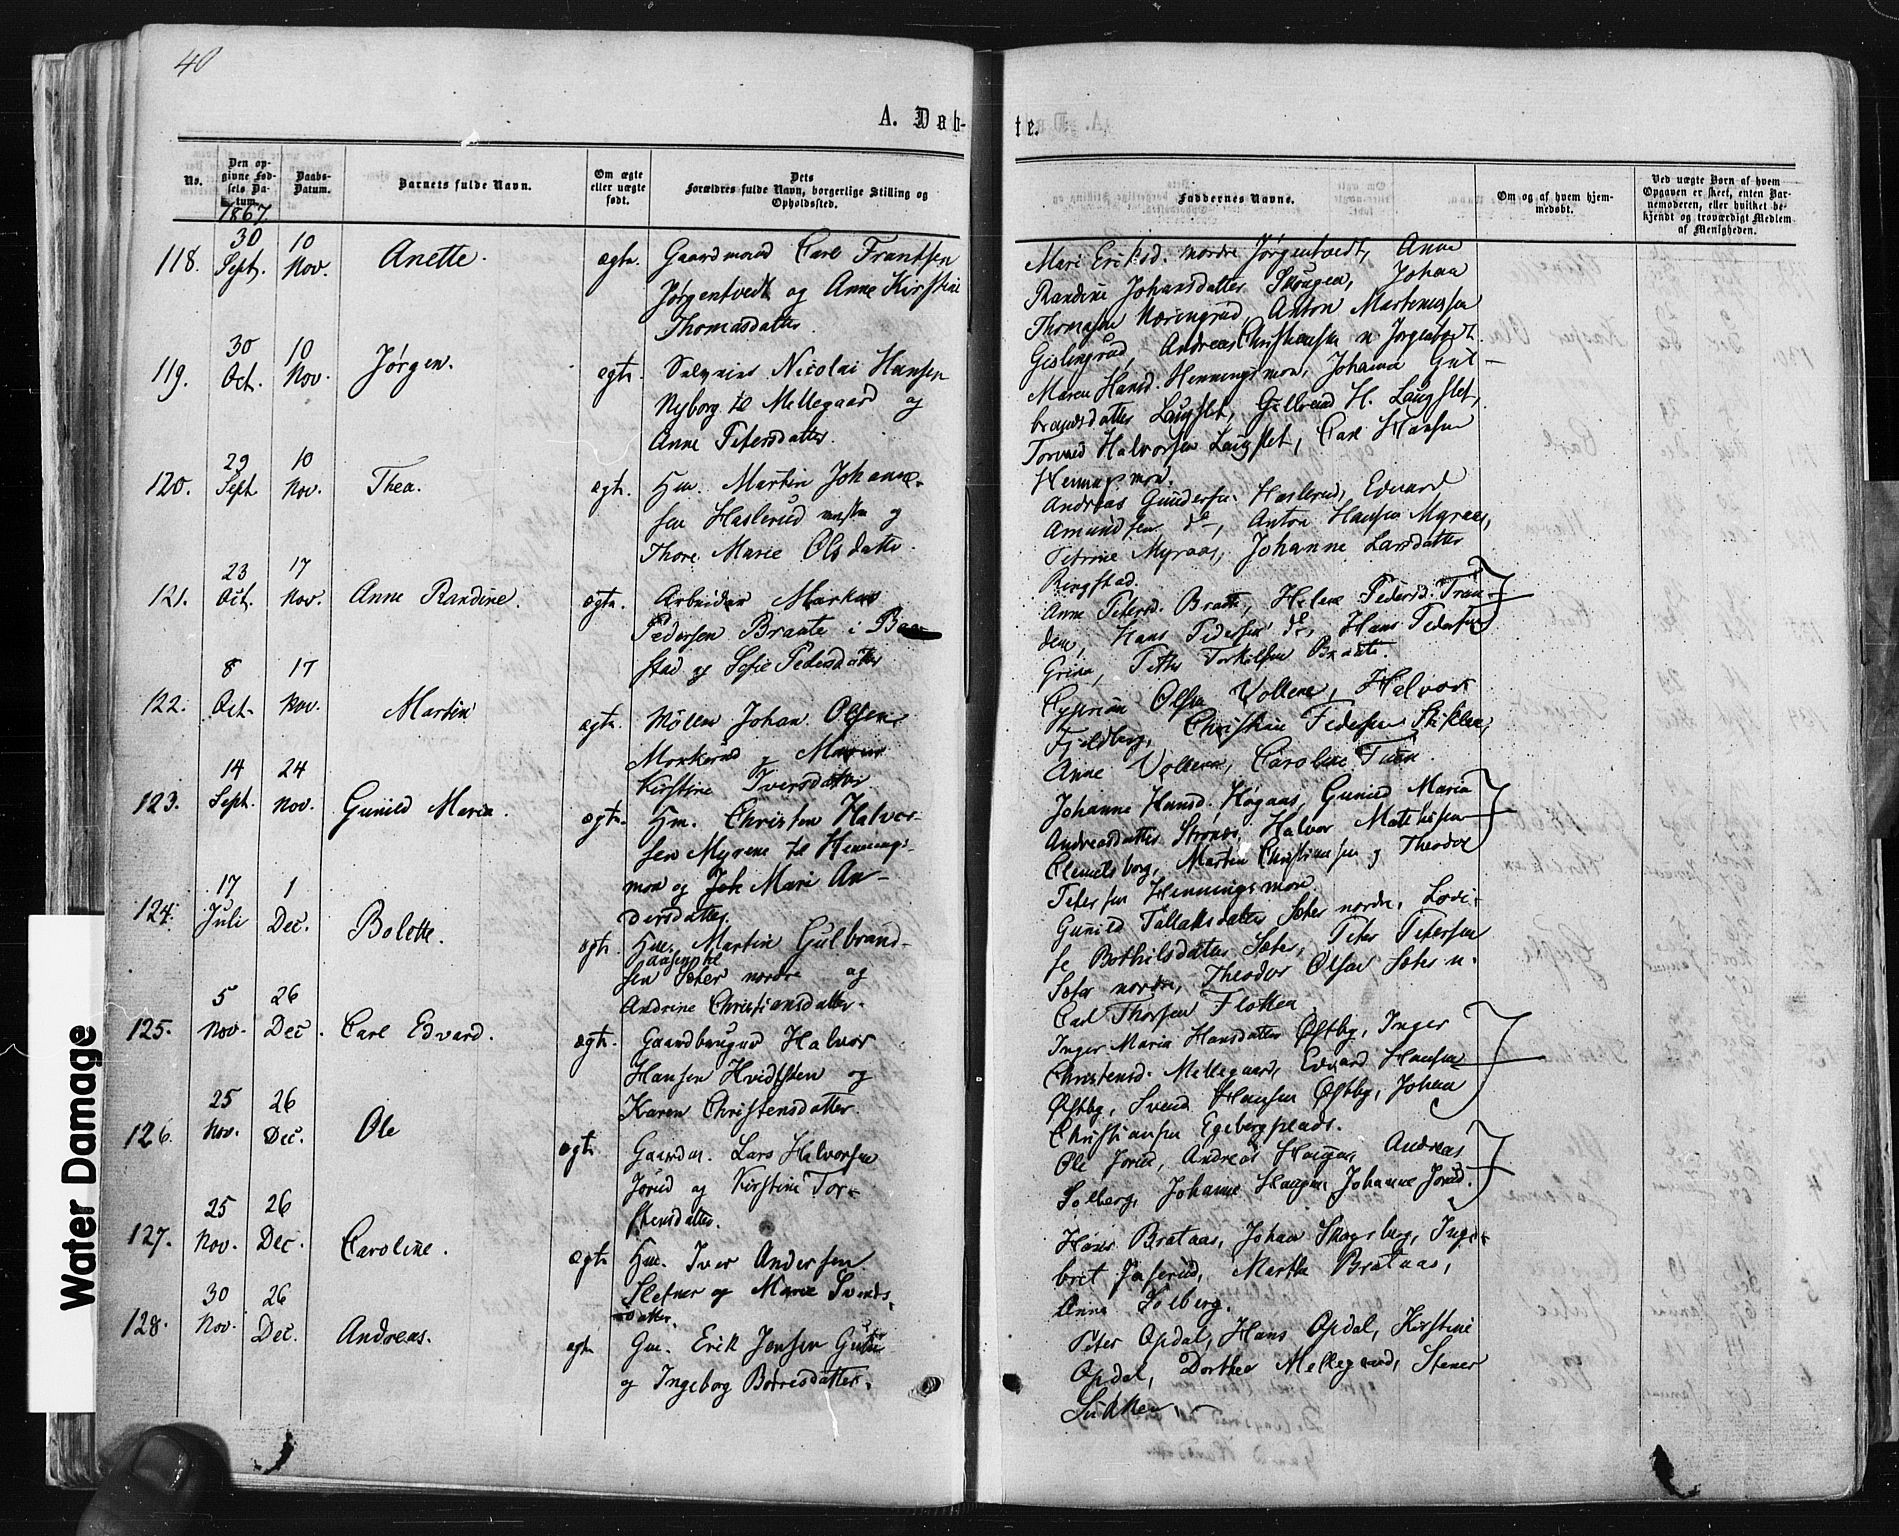 40
A. Døb-
te.
No.
Den op-
givne Fød-
sels Da-
tum.
1867.
Daabs-
Datum.
Barnets fulde Navn.
Om ægte
eller uægte
født.
Dets
Forældres fulde Navn, borgerlige Stilling og
Opholdssted.
Faddernes Navne.
Om og af hvem hjem-
medøbt.
Ved uægte Børn af hvem
Opgaven er skeet, enten Bar-
nemoderen, eller hvilket be-
kjendt og troværdigt Medlem
af Menigheden.
118.
30
Sept.
10
Nov.
Anette.
ægte.
Gaardmand Carl Frantsen
Jørgentvedt og Anne Kirstine
Thomasdatter.
Mari Eriksd. nordre Jørgentvedt, Anne
Randine Johansdatter Skougen, Johan
Thomasen Næringrud, Anton Martinussen
Gislingrud, Andreas Christiansen n Jørgentvedt.
119.
30
Oct.
10
Nov.
Jørgen.
ægte.
Nicolai Hansen
Nyborg til Mellegaard og
Anne Petersdatter.
Maren Hansd. Henningsmon, Johanna Gul-
brandsdatter Laugslet, Gulbrand H. Laugslet,
Torvald Halvorsen Laugslet, Carl Hansen
Henningsmon.
120.
29
Sept
10
Nov.
Thea.
ægte.
Hm. Martin Johanne-
sen Haslerud og
Thore Marie Olsdatter.
Andreas Gundersen Haslerud, Edvard
Amundsen do, Anton Hansen Myraas,
Petrine Myraas, Johanne Larsdatter
Ringstad.
121.
23
Oct.
17
Nov.
Anne Randine.
ægte.
Arbeider Markus
Pedersen Braate i Baa-
stad og Sofie Pedersdatter
Anne Petersd. Braate, Helene Pedersd. Tran-
dem, Hans Pedersen do, Hans Pedersen
Grina, Petter Torkilsen Braate.
122.
8
Oct.
17
Nov.
Martin
ægte.
Møller Johan Olsen
Monkerud og Maren
Kirstine Iversdatter.
Cyprian Olsen Vollene, Halvor
Fjeldberg, Christian Pedersen
Anne Vollene, Caroline
123.
14
Sept.
24
Nov.
Gunild Maria.
ægte.
Hm. Christen Halvor-
sen Myrene til Hennings-
mon og Joh Mari An-
dersdatter.
Johanne Hansd. Høgaas, Gunild Maria
Andreasdatter Strønes, Halvor Mathisen
Clemetsborg, Martin Christiansen og Theodor
Petersen Henningsmon.
124.
17
Juli
1
Dec.
Bolette.
ægte
Hm. Martin Gulbrand-
sen Sæter nordre og
Andrine Christiansdatter.
Gunild Tallaksdatter Sæter nordre, Lovi-
se Bothilsdatter Sæter, Peter Petersen
Sæter nordre, Theodor Olsen Sæter n.
Carl Thorsen Flotten
125.
5
Nov.
26
Dec.
Carl Edvard.
ægte.
Gaardbruger Halvor
Hansen Hvidsten og
Karen Christensdatter.
Inger Maria Hansdatter Østby, Inger
Christensd. Mellegaard, Edvard Hansen
Østby, Svend Hansen Østby, Johan
Christiansen Egebergplads.
126.
25
Nov.
26
Dec.
Ole
ægte
Gaardm. Lars Halvorsen
Jørud og Kirstine Tor-
stensdatter.
Ole Jørud, Andreas Haugen, Andreas
Solberg, Johanne Haugen, Johanne Jørud.
127.
25
Nov.
26
Dec.
Caroline.
ægte
Hm. Iver Andersen
Sletner og Marie Svends-
datter.
Hans Brataas, Johan Skogsberg, Inge-
bret Jaserud, Marthe Brataas,
Anna Solberg.
128.
30
Nov.
26
Dec.
Andreas.
ægte
Gm. Erik Jensen
og Ingeborg Børresdatter.
Peter Opdal, Hans Opdal, Kirstine
Opdal, Dorthea Mellegaard, Stener
Water Damage